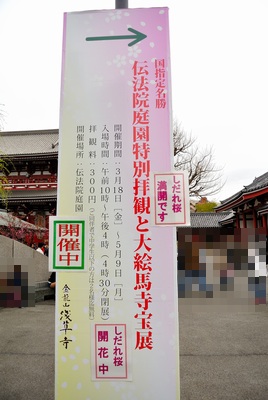 国指定名勝
伝法院庭園特別拝観と大絵馬寺宝展
開催期間：3月18日［金］～5月9日［月］
入場時間：午前10時～午後4時（4時30分閉展）
拝観料：300円
開催場所：伝法院庭園
金龍山
浅草寺
しだれ桜
満開です
開催中
しだれ桜
開花中